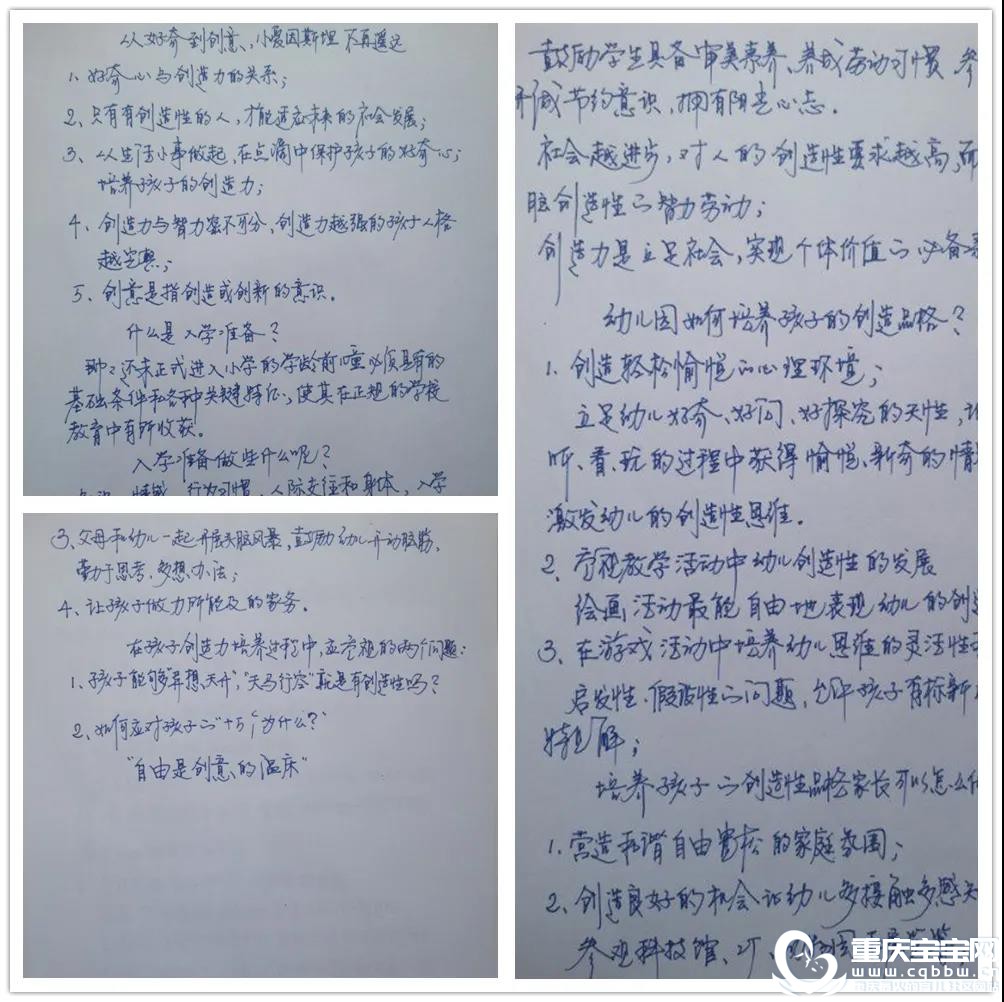 从好奇到创意，小爱因斯坦不再遥远
1、好奇心与创造力的关系；
2、只有有创造性的人，才能适应未来的社会发展；
3、从生活小事做起，在点滴中保护孩子的好奇心；
培养孩子的创造力；
4、创造力与智力密不可分、创造力越强的孩子人格
越完善；
5、创意是指创造或创新的意识。
什么是入学准备？
还未正式进入小学的学龄前儿童必须具有的
基础条件和各种关键特征，使其在正规的学校
教育中有所收获。
入学准备做些什么呢？
情感、行为习惯、人际交往和身体、入学
鼓励学生具备审美素养、养成劳动习惯、参
节约意识，拥有阳光心态。
社会越进步，对人的创造性要求越高，而
脑创造性的智力劳动；
创造力是立足社会，实现个体价值的必备
幼儿园如何培养孩子的创造品格？
1、创造轻松愉悦的心理环境；
立足幼儿好奇、好问、好探究的天性，让
听、看、玩的过程中获得愉悦、新奇的情
激发幼儿的创造性思维。
2、重视教学活动中幼儿创造性的发展
绘画活动最能自由地表现幼儿的创造
3、在游戏活动中培养幼儿思维的灵活性
启发性、假设性的问题，允许孩子有标新
特见解；
培养孩子的创造性品格家长可以怎么做
1、营造和谐自由宽松的家庭氛围；
2、创造良好的机会让幼儿多接触多感知
参观科技馆、
3、父母和幼儿一起开展头脑风暴，鼓励幼儿开动脑筋，
勤于思考，多想办法；
4、让孩子做力所能及的家务。
在孩子创造力培养过程中，应重视的两个问题：
1、孩子能够“异想天开”，“天马行空”就是有创造性吗？
2、如何应对孩子的“十万个为什么？”
“自由是创意的温床”
重庆宝宝网
www.cqbbw.cn